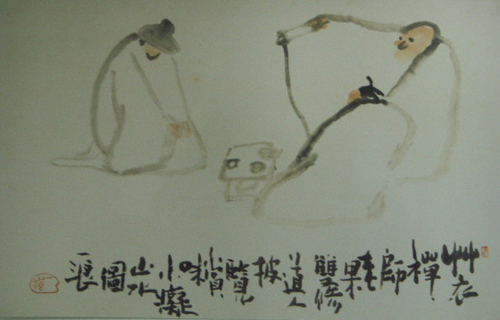 艸衣禪師果雙修道人披覽賞味小癡山水圖浪